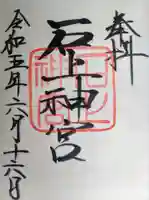 奉拝
石上神宮
令和五年六月十六日